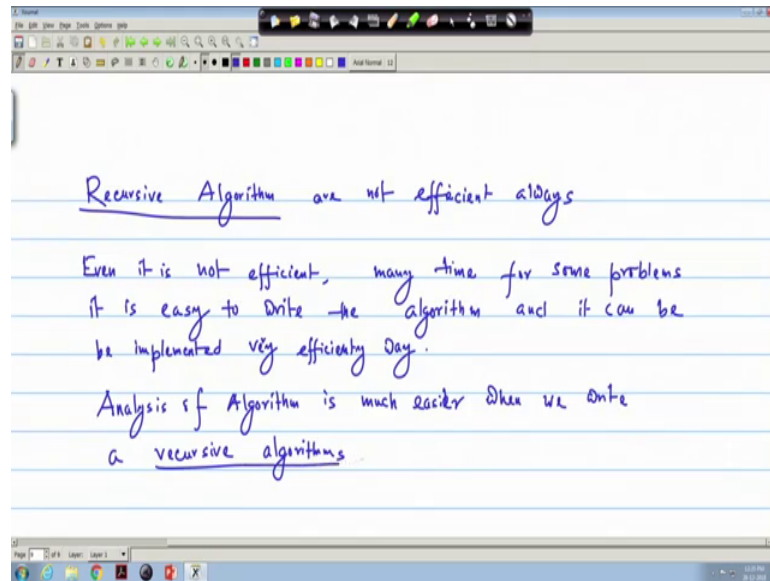 Journal
File Edit View Page Tools Options Help
Arial Normal 12
Recursive Algorithm are not efficient always
Even it is not efficient, many time for some problems
it is easy to write the algorithm and it can be
be implemented very efficienty way.
Analysis of Algorithm is much easier when we write
a recursive algorithms
Page 9 of 9 Layer: Layer 1